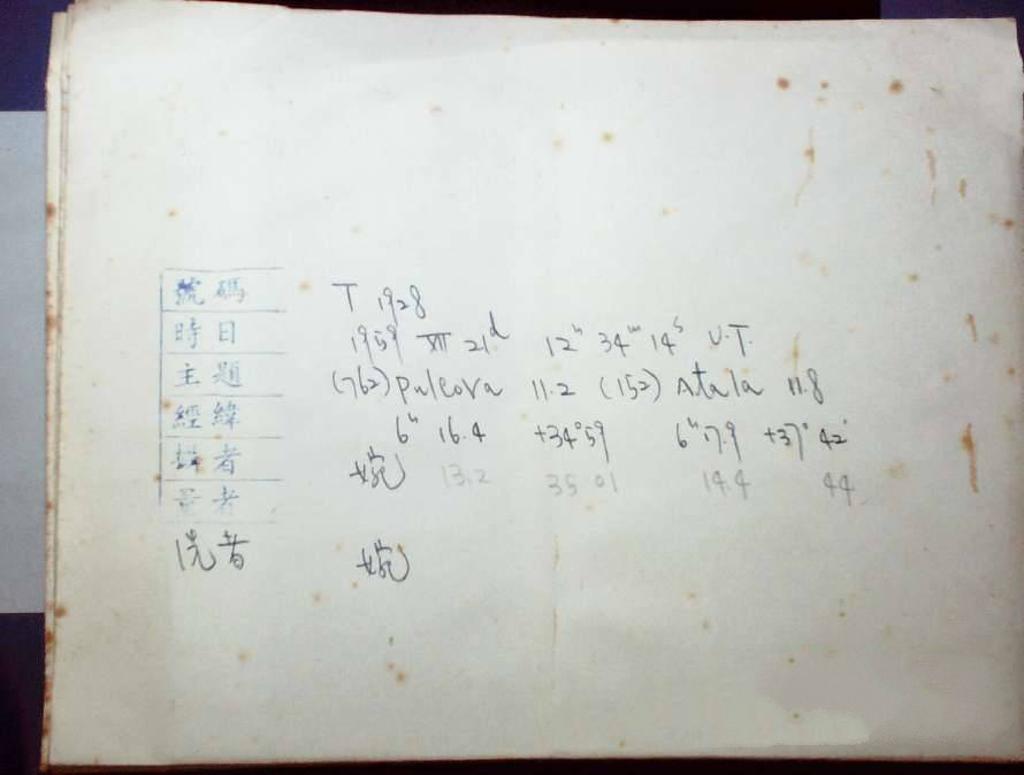 號碼 T 1928
時日 1959 XII 21ᵈ 12ʰ 34ᵐ 14ˢ U.T.
主題 (762) Pulcova 11.2 (152) Atala 11.8
經緯 6ʰ 16.4 +34°59 6ʰ17.9 +37°42'
攝者 婉 13.2 35 01 14.4 44
量者
洗者 婉